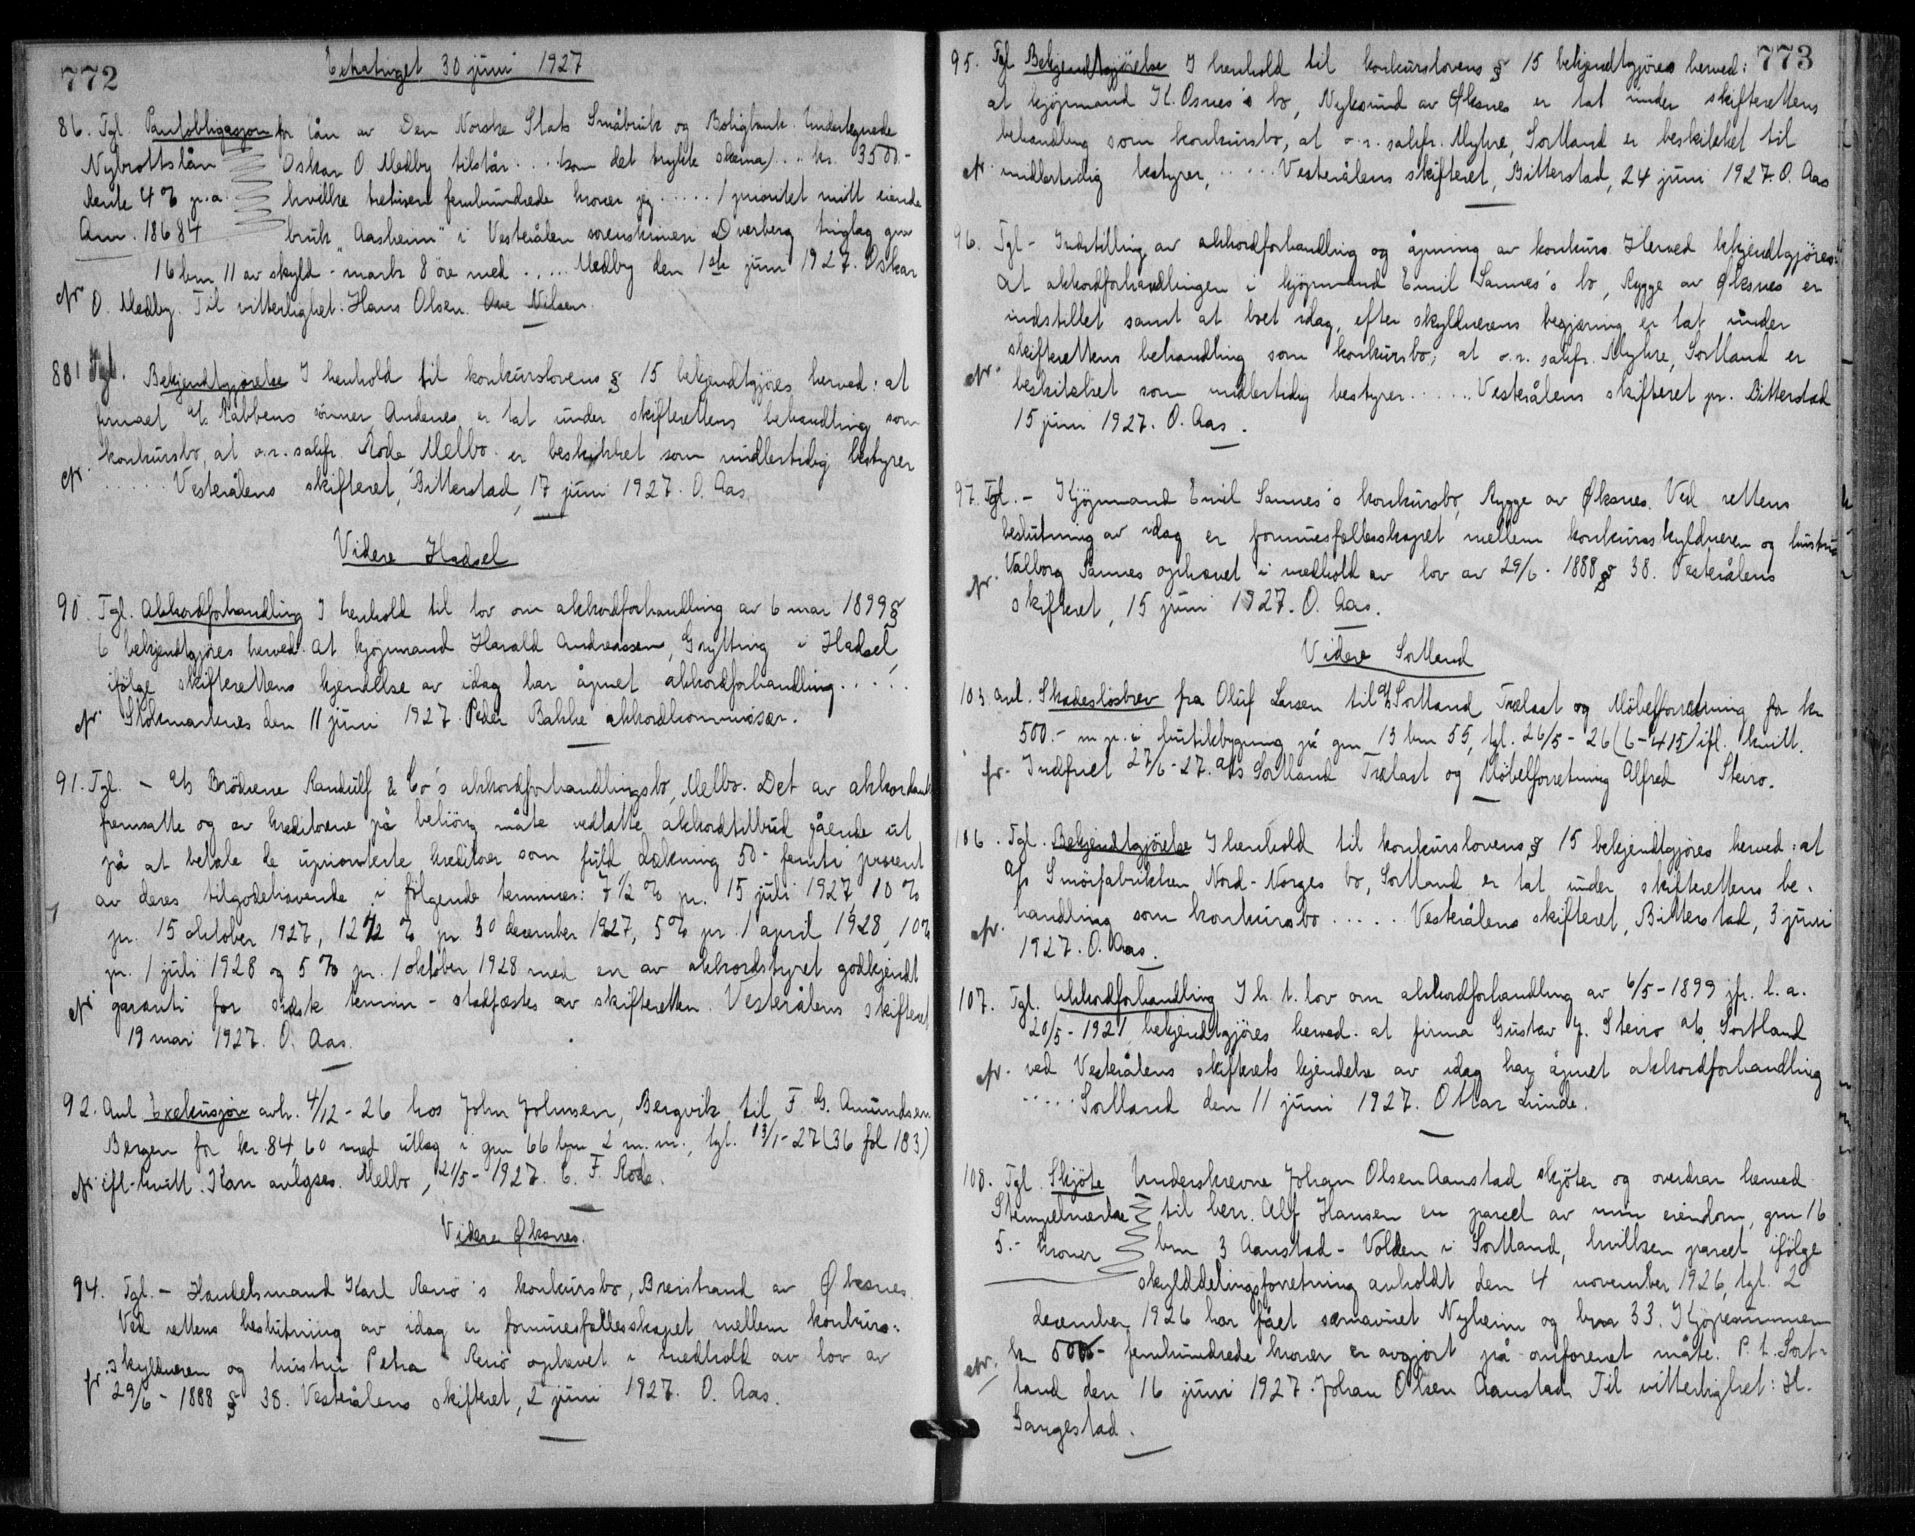 772
Ekstratinget 30 juni 1927
86. Tgl. Pantobligasjon for lån av Den Norske Stats Småbruk og Boligbank. Undertegnede
Nybrottslån Oskar O Medby tilstår .... (som det trykte skema) .. kr. 3500.-
Rente 4 % p.a. hvilke tretisen femhundrede kroner jeg ..... 1 prioritet mitt eiende
Anm. 18684 bruk "Aasheim" i Vesterålen sorenskriveri Dverberg tinglag gnr
16 brn 11 av skyld - mark 8 øre med ..... Medby den 1ste juni 1927. Oskar
O. Medby. Til vitterlighet: Hans Olsen. Ove Nilsen.
cfr
881 Tgl. Bekjendtgjørelse I henhold til konkurslovens § 15 bekjendtgjøres herved: at
firmaet Rabbens sønner, Andenes, er tat under skifterettens behandling som
konkursbo, at o.r. sakfr. Rode Melbo er beskikket som midlertidig bestyrer
cfr. ..... Vesterålens skifteret, Bitterstad, 17 juni 1927. O. Aas.
Videre Hadsel
90. Tgl. Akkordforhandling I henhold til lov om akkordforhandling av 6 mai 1899 §
6 bekjendtgjøres herved. At kjøpmand Harald Andreassen, Grytting i Hadsel,
ifølge skifterettens kjendelse av idag har åpnet akkordforhandling.....
cfr. Stokmarknes den 11 juni 1927. Peder Bakke akkordkommissær.
91. Tgl. - A/s Brødrene Randulf & Co's akkordforhandlingsbo, Melbo. Det av akkordanten
fremsatte og av kreditorene på behörig måte vedtatte akkordtilbud gående ut
på at betale de uprioriterte kreditorer som fuld dækning 50 - femti procent
av deres tilgodehavende i følgende terminer: 7 1/2 % pr. 15 juli 1927 10 %
pr. 15 oktober 1927, 12 1/2 % pr. 30 december 1927, 5 % pr. 1 april 1928, 10 %
pr. 1 juli 1928 og 5 % pr. 1 oktober 1928 med en av akkordstyret godkjendt
cfr garanti for sidste termin - stadfæstes av skifteretten. Vesterålens skifteret
19 mai 1927. O. Aas.
92. Anl Exekusjon avh. 4/12 - 26 hos John Johnsen, Bergvik til F. G. Amundsen
Bergen for kr. 84,60 med utlæg i gnr 66 brn 2 m.m., tgl. 13/1 - 27 (36 fol 183)
cfr ifl. kvitt. Kan avlyses. Melbo, 21/5 - 1927. C. F. Rode.
Videre Øksnes.
94. Tgl. - Handelsmand Karl Renø's konkursbo, Breistrand av Øksnes.
Ved rettens beslutning av idag er formuesfællesskapet mellem konkurs-
skyldneren og hustru Petra Renø ophævet i medhold av lov av
fr. 29/6 - 1888 § 38. Vesterålens skifteret, 2 juni 1927. O. Aas.
773
95. Tgl Bekjendtgjørelse I henhold til konkurslovens § 15 bekjendtgjøres herved:
at kjøpmand K. Osnes's bo, Nyksund av Øksnes er tat under skifterettens
behandling som konkursbo, at o.r. sakfr. Myhre, Sortland er beskikket til
cfr. midlertidig bestyrer, ..... Vesterålens skifteret, Bitterstad, 24 juni 1927. O. Aas
96. Tgl - Indstilling av akkordforhandling og åpning av konkurs. Herved bekjendtgjøres:
At akkordforhandlingen i kjøpmand Emil Sannes's bo, Rygge av Øksnes er
indstillet samt at boet idag, efter skyldnerens begjæring er tat under
skifterettens behandling som konkursbo; at o.r. sakfr. Myhre, Sortland er
cfr. beskikket som midlertidig bestyrer ...... Vesterålens skifteret pr. Bitterstad
15 juni 1927. O. Aas.
97. Tgl. - Kjøpmand Emil Sannes's konkursbo, Rygge av Øksnes. Ved rettens
beslutning av idag er formuesfællesskapet mellem konkursskyldneren og hustru
cfr. Valborg Sannes ophævet i medhold av lov av 29/6 - 1888 § 38. Vesterålens
skifteret, 15 juni 1927. O. Aas.
Videre Sortland
103 anl. Skadesløsbrev fra Oluf Larsen til A/S Sortland Trælast og Møbelforretning for kr
500.- m. p. i butikbygning på gnr 13 brn 55, tgl. 26/5 - 26 (6 - 415) ifl. kvitt.
fr. Indfriet 27/6 - 27. A/s Sortland Trælast og Møbelforretning Alfred Steiro.
106. Tgl. Bekjendtgjørelse I henhold til konkurslovens § 15 bekjendtgjøres herved: at
A/s Smörfabrikken Nord-Norges bo, Sortland er tat under skifterettens be-
cfr. handling som konkursbo ..... Vesterålens skifteret, Bitterstad, 3 juni
1927. O. Aas.
107. Tgl. Akkordforhandling I h. t. lov om akkordforhandling av 6/5 - 1899 jfr. l. a.
20/5 - 1921 bekjendtgjöres herved: at firma Gustav J. Steiro A/s, Sortland
cfr. ved Vesterålens skifterets kjendelse av idag har åpnet akkordforhandling
..... Sortland den 11 juni 1927. Ottar Lunde.
108. Tgl. Skjöte Underskrevne Johan Olsen Aanstad skjöter og overdrar herved
Stempelmerke til herr. Alf Hansen en parcel av min eiendom, gnr 16
5.- kroner brn 3 Aanstad - Volden i Sortland, hvilken parcel ifölge
skylddelingsforretning avholdt den 4 november 1926, tgl. 2
december 1926 har fået særnavnet Nyheim og brn 33. Kjöpesummen
kr 500.- femhundrede kroner er avgjort på omforenet måte. P. t. Sort-
cfr. land den 16 juni 1927. Johan Olsen Aanstad. Til vitterlighet: H.
Gangestad.